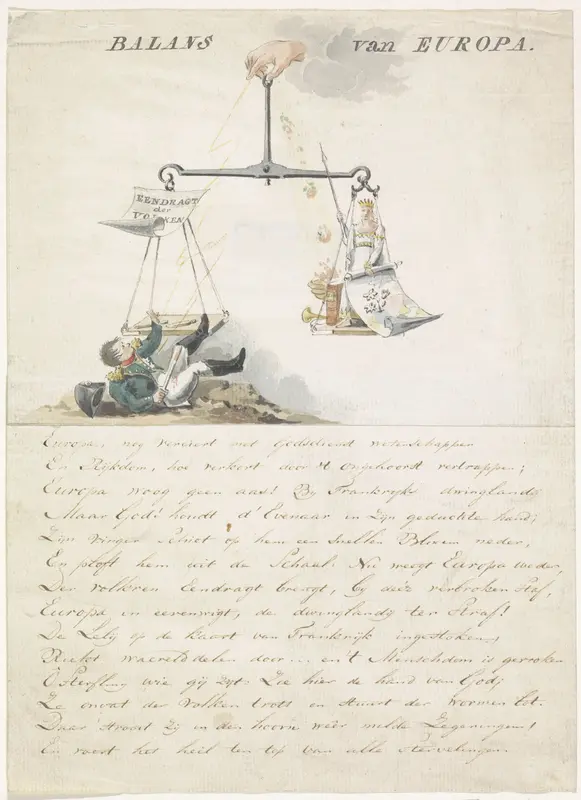 BALANS van EUROPA.
EENDRAGT
der
VOLKEN
Europa, nog vereiert met Godsdienst wetenschappen
En Rijkdom, hoe verkert door 't ongehoorst vertrappen;
Europa woog geen aas! By Frankryks dwinglandy
Maar God! houdt d' Evenaar in Zijn geduchte hand;
Zijn vinger schiet op hem een snellen Blixem neder,
En ploft hem uit de Schaal. Nu weegt Europa weder,
Der volkren Eendragt brengt, by deze verbroken Staf,
Europa in evenwigt, de dwinglandy ter Straf!
De Lely op de kaart van Frankrijk ingestoken,
waerelddelen door en 't Menschdom is gewroken
Sterfling wie gij zijt Zie hier de hand van God;
Ze der volken trots en der wormen lot.
Daar Zij en den hoorn weer milde Zegeningen!
En voert het heil ten top van alle Stervelingen.